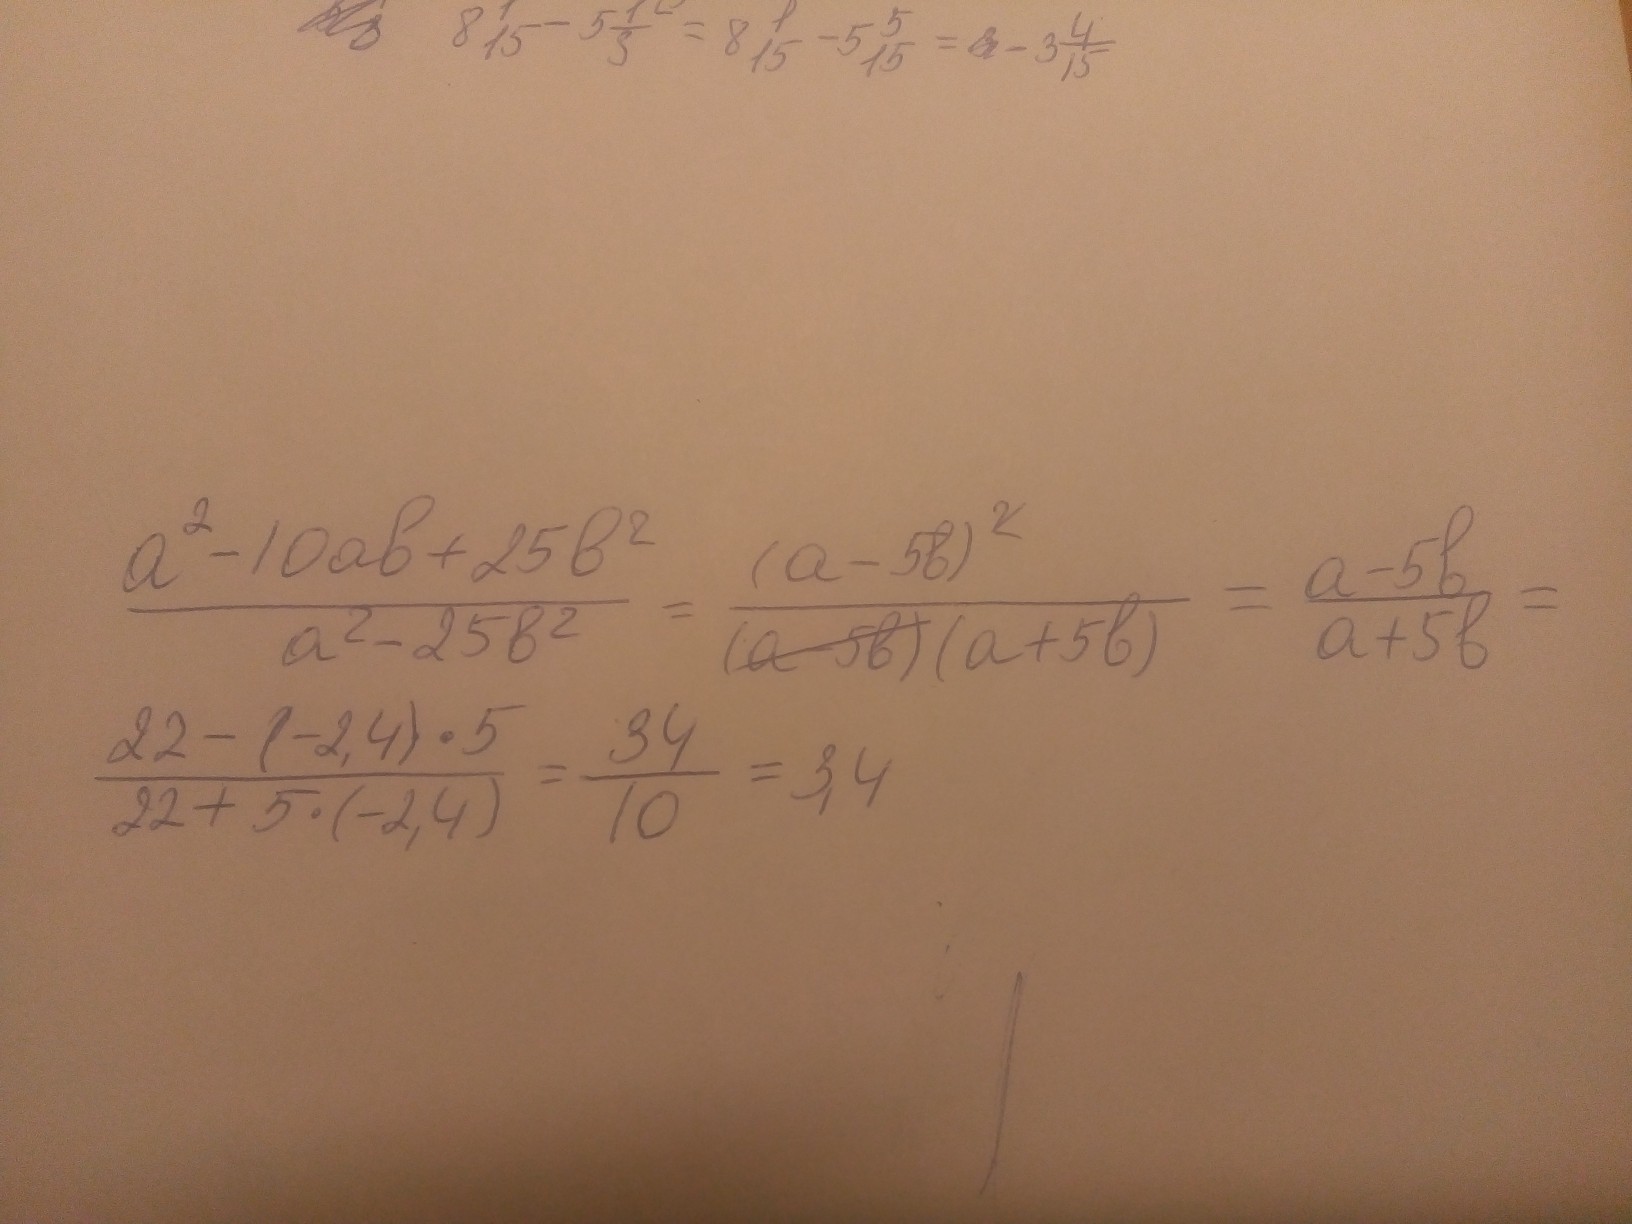 8 1/15 - 5 1/3 = 8 1/15 - 5 5/15 = - 3 4/15
(a² - 10ab + 25b²)/(a² - 25b²) = (a - 5b)²/((a - 5b)(a + 5b)) = (a - 5b)/(a + 5b) =
(22 - (-2,4) · 5)/(22 + 5 · (-2,4)) = 34/10 = 3,4